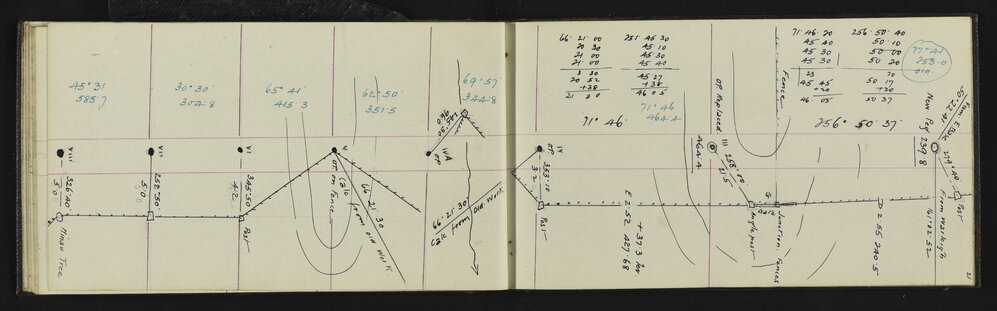 45° 31'
585.7
30° 30'
304.8
65° 41'
415.3
62° 50'
351.5
69° 57'
344.8
VIII
326.40
5.0
Hinau Tree
VII
252.50
5.0
VI
345.50
4.2
Post
V
OP on Fence
66 21 30
Calc from Old Work
OP IVA
66.21.30
Calc from Old Work
66. 21. 00
20 30
21 00
21 00
3 30
20 52
+38
21 30
251 45 30
45 10
45 30
45 40
45 27
+38
46 05
71° 46
464.4
71° 46
OP IV
353.10
3.2
Post
E 2.52
+37.3
427.68
OP Replaced III
464.4
258.00
21.5
Fence
Angle post
Gate
Junction Fences
71 46 20
45 40
45 30
45 30
23
45 45
+20
46 05
256 50 40
50 10
50 00
50 20
70
50 17
+20
50 37
256° 50 37
77° 41
253.0
old
D 2.55 240.5
New Peg
239.8
279° 40
Post
161.02.52
21